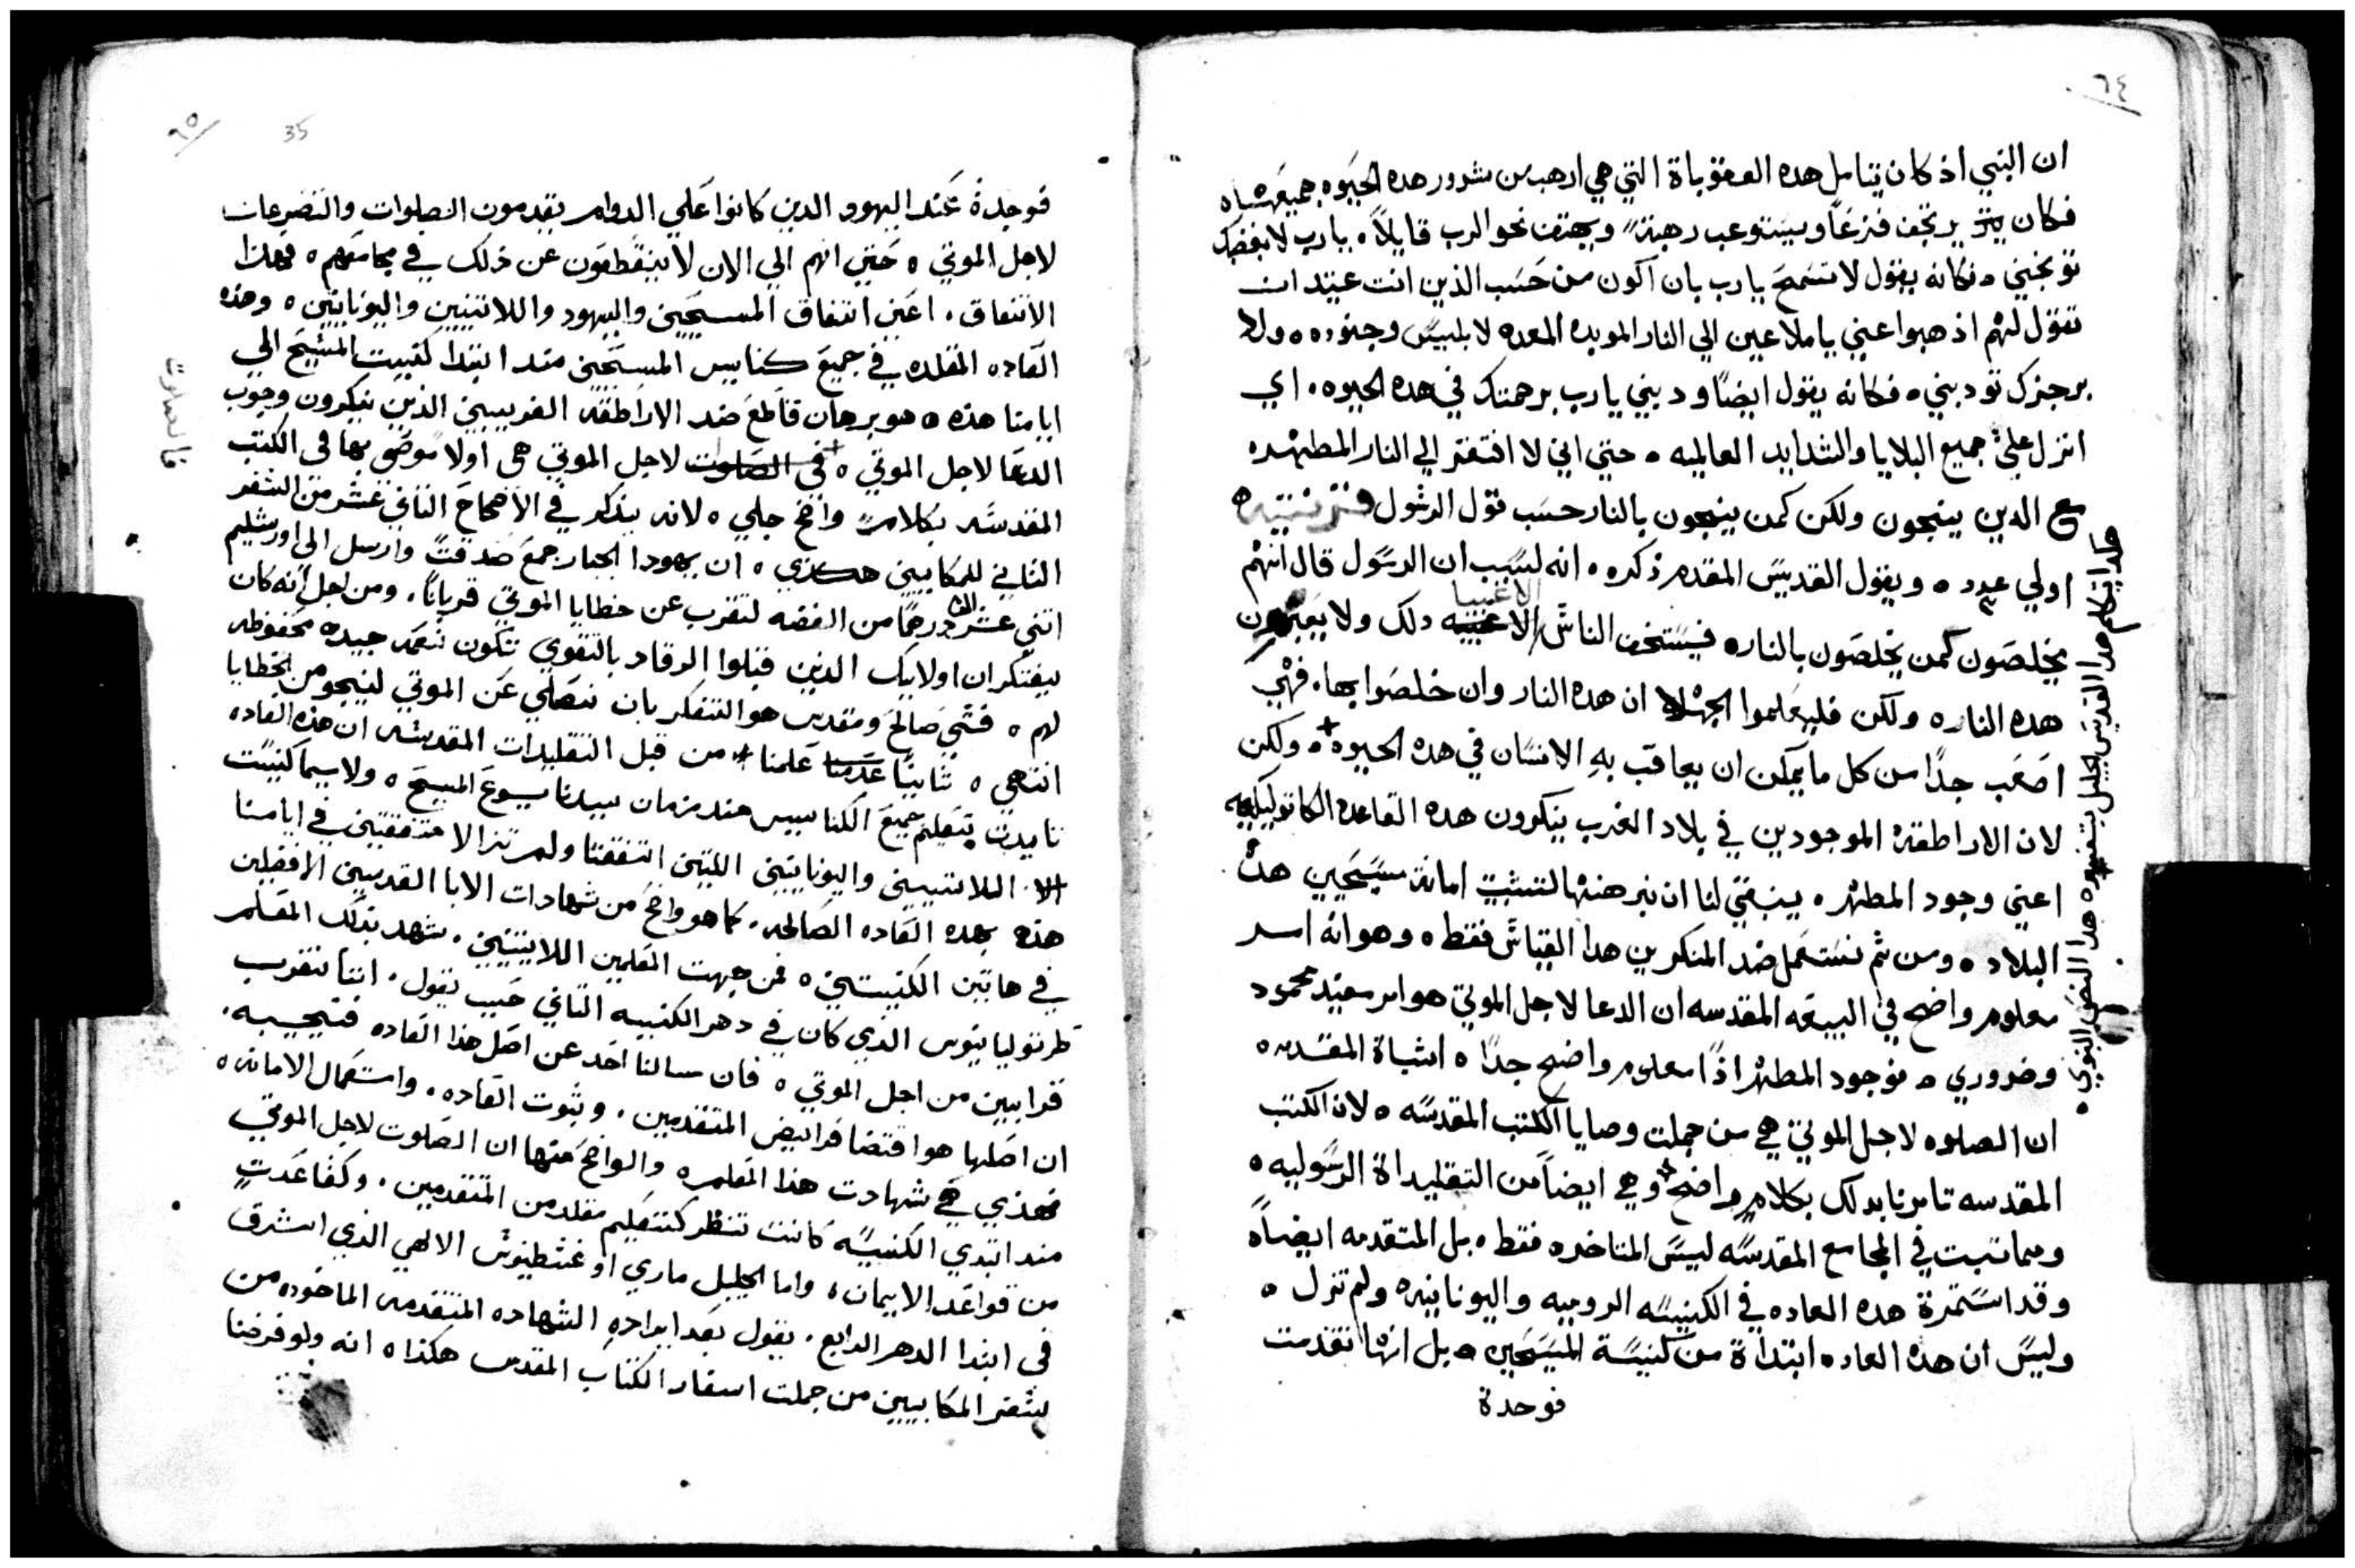 ٦٤
ان النبي اذ كان يتامل هده العقوباة التي هي ارهب من شرور هده الحيوه جميعها
فكان يرتجف فزعًا ويستوعب رهبةً ويهتف نحو الرب قايلاً يارب لا بغضبك
توبخني ه فكانه يقول لا تسمح يارب بان اكون من حسب الذين انت عتيد ان
تقول لهم اذهبوا عني ياملاعين الي النار الموبده المعده لابليس وجنوده ه ولا
برجزك تودبني ه فكانه يقول ايضًا ودبني يارب برحمتك في هده الحيوه اي
انزل عليّ جميع البلايا والشدايد العالميه ه حتي اني لا افتقر الي النار المطهره
مع الدين ينجون ولكن كمن ينجون بالنار حسب قول الرسول
اولي عدد ه ويقول القديس المقدم ذكره انه لسبب ان الرسول قال انهم
يخلصون كمن يخلصون بالناره فيستخف الناس الاغبيا دلك ولا يعتبرون
هده الناره ولكن فليعلموا الجهلا ان هده النار وان خلصوا بها فهي
اصعب جدًا من كل ما يمكن ان يعاقب به الانسان في هده الحيوه ه ولكن
لان الاراطقة الموجودين في بلاد الغرب ينكرون هده القاعده الكاتوليكيه
اعني وجود المطهر ه ينبغي لنا ان نبرهنها لتتبت امانة مسيحيين هده
البلاد ه ومن ثم نستعمل ضد المنكرين هدا القياس فقط ه وهو انه امر
معلوم واضح في البيعه المقدسه ان الدعا لاجل الموتي هو امر مفيد محمود
وضروري ه فوجود المطهر اذًا معلوم واضح جدًا ه اثباة المقدمه
ان الصلوه لاجل الموتي هي من جملت وصايا الكتب المقدسه ه لان الكتب
المقدسه تامرنا بدلك بكلام واضح وهي ايضًا من التقليداة الرسوليه ه
ومما تبت في المجامع المقدسه ليس المتاخره فقط ه بل المتقدمه ايضًا ه
وقد استمرة هده العاده في الكنيسه الروميه واليونانيه ولم تزل ه
وليس ان هده العاده ابتداة من كنيسة المسيحيين ه بل انها تقدمت
فوجدة
هكدا يتكلم هدا القديس الجليل بتفسيره هدا النص النبوي ه
٦٥
35
فوجدة عند اليهود الدين كانوا علي الدوام يقدمون الصلوات والتضرعات
لاجل الموتي ه حتي انهم الي الان لا ينقطعون عن ذلك في مجامعهم ه فهذا
الاتفاق اعني اتفاق المسيحيين واليهود واللاتينيين واليونانيين ه وهذه
العاده المقلده في جميع كنايس المسيحيين مند ابتدا كنيست المسيح الي
ايامنا هذه ه هو برهان قاطع ضد الاراطقه الغربيين الذين ينكرون وجوب
الدعا لاجل الموتي ه في الصلوات لاجل الموتي هي اولاً موصي بها في الكتب
المقدسه بكلامً واضح جلي ه لانه يذكر في الاصحاح الثاني عشر من السفر
الثاني للمكابيين هكذي ه ان يهودا الجبار جمع صدقتً وارسل الي اورشليم
اثني عشر الف درهمًا من الفضه لتقرب عن خطايا الموتي قربانًا ومن اجل انه كان
يفتكر ان اولايك الذين قبلوا الرقاد بالتقوي تكون نعمه جيده محفوظه
لهم ه فشي صالح ومقدس هو التفكر بان نصلي عن الموتي لينجو من الخطايا
انتهي ه ثانيًا علمنا من قبل التقليدات المقدسه ان هذه العاده
تايدت بتعليم جميع الكنايس منذ زمان سيدنا يسوع المسيح ه ولاسيما كنيست
اللاتينيين واليونانيين اللتين اتفقتا ولم تزالا متفقتين في ايامنا
هذه بهده العاده الصالحه كما هو واضح من شهادات الابا القديسين الافضلين
في هاتين الكنيستين ه فمن جهت المعلمين اللاتينيين شهد بذلك المعلم
طرتوليانوس الذي كان في دهر الكنيسه التاني حيب يقول اننا نقرب
قرابين من اجل الموتي ه فان سالنا احد عن اصل هذا العاده فنجيبه
ان اصلها هو اقتضا فرايض المتقدمين وثبوت العاده واستعمال الامانه ه
فهذي هي شهادت هذا المعلم ه والواضح منها ان الصلوت لاجل الموتي
مند ابتدي الكنيسه كانت تنظر كتعليم مقلد من المتقدمين وكقاعدتٍ
من قواعد الايمان واما الجليل ماري اوغسطينوس الالهي الذي اشرق
في ابتدا الدهر الرابع يقول بعد ايراده الشهاده المتقدمه الماخوده من
سفر المكابيين من جملت اسفار الكتاب المقدس هكذا ه انه ولو فرضنا
فالصلوت